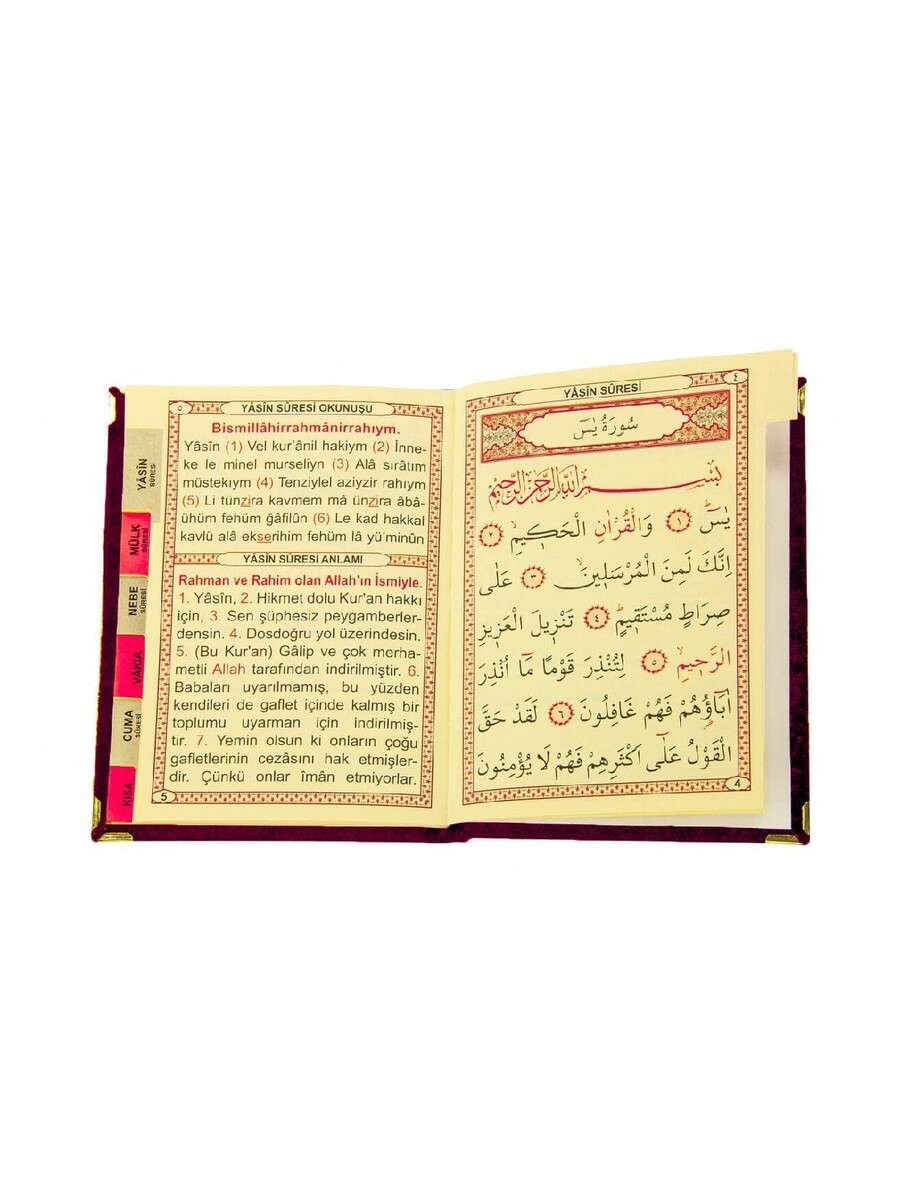 YÂSİN
SÛRESİ
MÜLK
SÛRESİ
NEBE
SÛRESİ
VÂKIA
CUMA
SÛRESİ
KISA
٥
YÂSÎN SÛRESİ OKUNUŞU
Bismillâhirrahmânirrahıym.
Yâsîn (1) Vel kur'ânil hakiym (2) İnne-
ke le minel murseliyn (3) Alâ sırâtım
müstekıym (4) Tenziylel aziyzir rahıym
(5) Li tünzira kavmem mâ ünzira âbâ-
ühüm fehüm ğafilûn (6) Le kad hakkal
kavlü alâ ekserihim fehüm lâ yü'minûn
YÂSÎN SÛRESİ ANLAMI
Rahman ve Rahim olan Allah'ın İsmiyle.
1. Yâsîn, 2. Hikmet dolu Kur'an hakkı
için, 3. Sen şüphesiz peygamberler-
densin. 4. Dosdoğru yol üzerindesin.
5. (Bu Kur'an) Gâlip ve çok merha-
metli Allah tarafından indirilmiştir. 6.
Babaları uyarılmamış, bu yüzden
kendileri de gaflet içinde kalmış bir
toplumu uyarman için indirilmiş-
tir. 7. Yemin olsun ki onların çoğu
gafletlerinin cezasını hak etmişler-
dir. Çünkü onlar îmân etmiyorlar.
5
YÂSÎN SÛRESİ
٤
سُورَةُ يٰسٓ
بِسْمِ اللّٰهِ الرَّحْمٰنِ الرَّحِيمِ
يٰسٓ ﴿١﴾ وَالْقُرْاٰنِ الْحَك۪يمِۙ ﴿٢﴾
اِنَّكَ لَمِنَ الْمُرْسَل۪ينَۙ ﴿٣﴾ عَلٰى
صِرَاطٍ مُسْتَق۪يمٍۜ ﴿٤﴾ تَنْز۪يلَ الْعَز۪يزِ
الرَّح۪يمِۙ ﴿٥﴾ لِتُنْذِرَ قَوْمًا مَٓا اُنْذِرَ
اٰبَٓاؤُ۬هُمْ فَهُمْ غَافِلُونَ ﴿٦﴾ لَقَدْ حَقَّ
الْقَوْلُ عَلٰٓى اَكْثَرِهِمْ فَهُمْ لَا يُؤْمِنُونَ
4